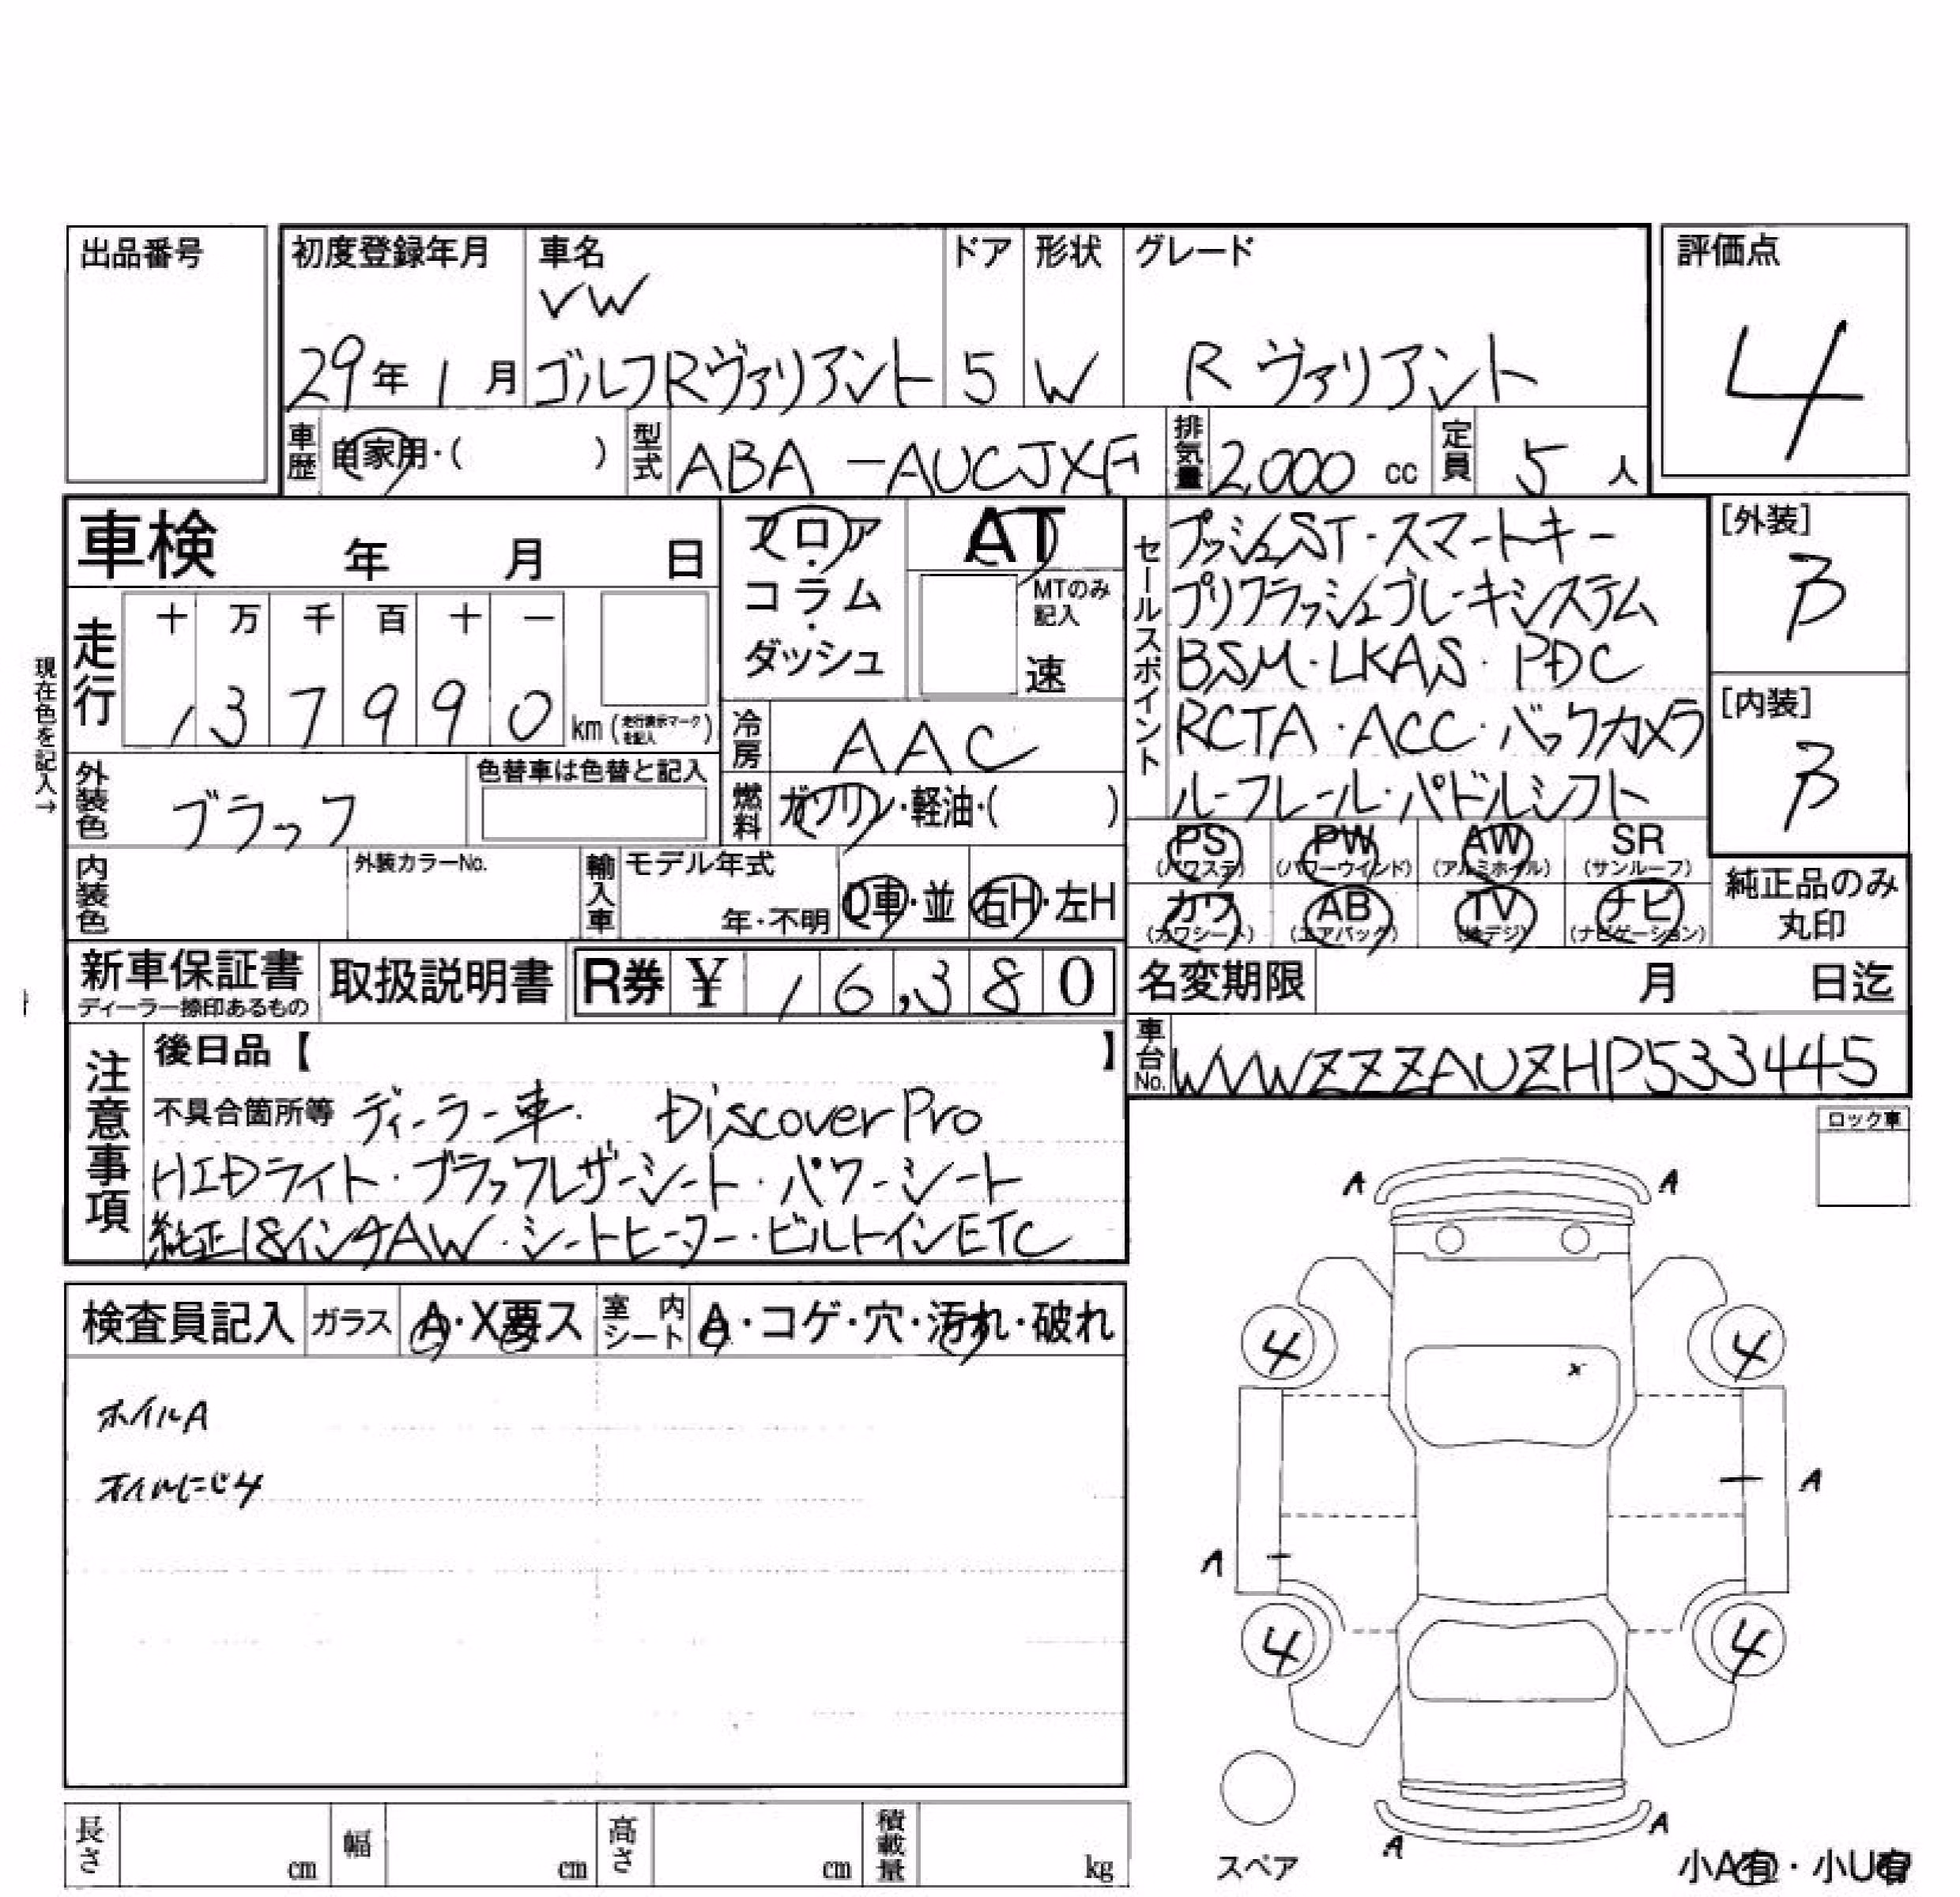 出品番号
初度登録年月 車名 ドア 形状 グレード 評価点
VW
29年 1月 ゴルフRヴァリアント 5 W R ヴァリアント 4
車歴 自家用・( ) 型式 ABA-AUCJXF 排気量 2,000 cc 定員 5 人
車検 年 月 日
フロア・コラム・ダッシュ
AT
MTのみ記入
速
現在色を記入→
走行 十 万 千 百 十 一
37990 km (走行表示マークを記入)
外装色 ブラック 色替車は色替と記入
冷房 AAC
燃料 ガソリン・軽油・( )
内装色 外装カラーNo. 輸入車 モデル年式
年・不明 D車・並 右H・左H
セールスポイント プッシュST・スマートキー
プリクラッシュブレーキシステム
BSM・LKAS・PDC
RCTA・ACC・バックカメラ
ルーフレール・パドルシフト
[外装]
B
[内装]
B
PS PW AW SR
(パワステ) (パワーウインド) (アルミホイル) (サンルーフ)
カワ AB TV ナビ
(カワシート) (エアバック) (地デジ) (ナビゲーション)
純正品のみ
丸印
新車保証書
ディーラー捺印あるもの
取扱説明書 R券 ¥ 16,380
名変期限 月 日迄
車台No. WVWZZZAUZHP533445
注意事項 後日品【 】
不具合箇所等 ディーラー車. Discover Pro
HIDライト・ブラックレザーシート・パワーシート
純正18インチAW・シートヒーター・ビルトインETC
ロック車
検査員記入 ガラス A・X要ス 室内シート A・コゲ・穴・汚れ・破れ
ホイルA
オイルにじみ
A A
4 4
x
A
A
4 4
A A
スペア
小A有・小U有
長さ cm 幅 cm 高さ cm 積載量 kg